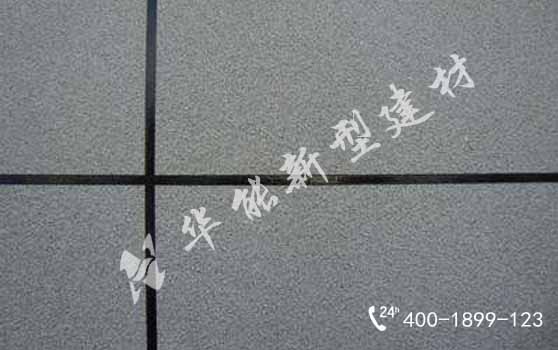 华能新型建材
24h 400-1899-123